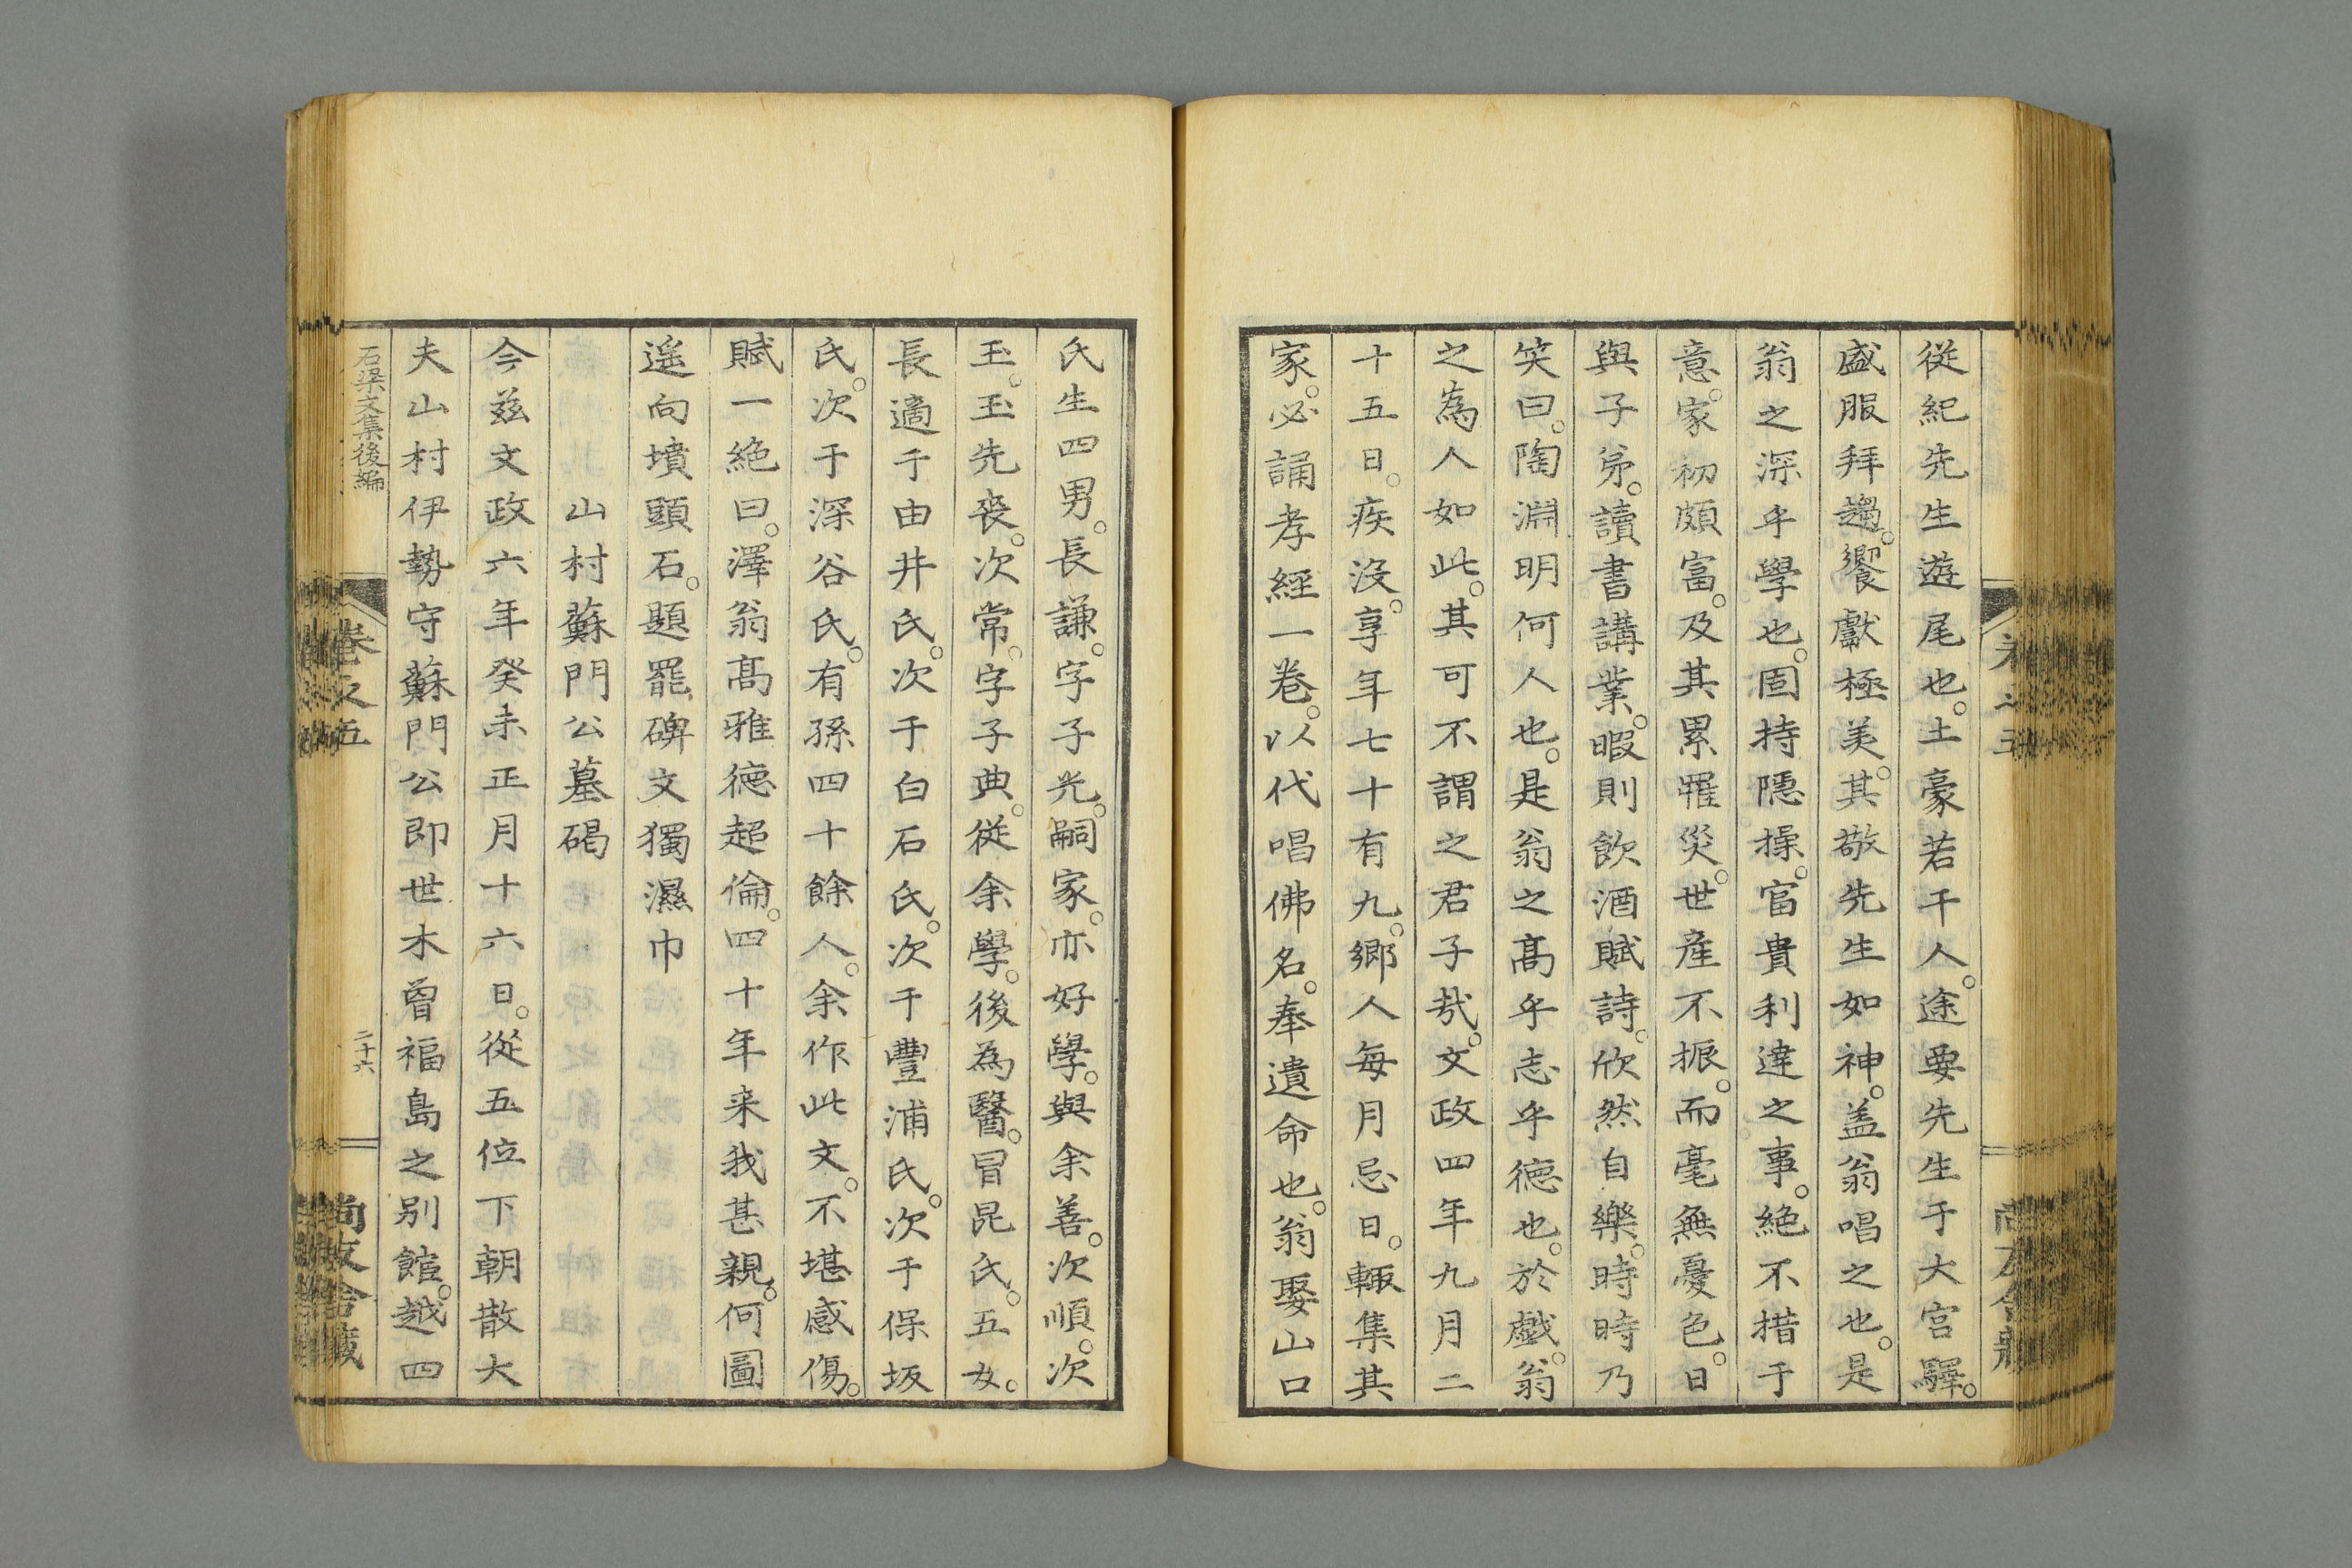 従紀先生遊尾也。土豪若干人。途要先生于大宮驛。
盛服拜趨。饗獻極美。其敬先生如神。盖翁唱之也。是
翁之深乎學也。固持隱操。富貴利達之事。絶不措于
意。家初頗富。及其累罹災。世産不振。而毫無憂色。日
與子弟。讀書講業。暇則飲酒賦詩。欣然自樂。時時乃
笑曰。陶淵明何人也。是翁之髙乎志乎德也。於戯。翁
之為人如此。其可不謂之君子㦲。文政四年九月二
十五日。疾没。享年七十有九。郷人每月忌日。輙集其
家。必誦孝經一卷。以代唱佛名。奉遺命也。翁娶山口
氏生四男。長謙。字子光。嗣家。亦好學。與余善。次順。次
玉。玉先喪。次常。字子典。從余學。後為醫。冒昆氏。五女。
長適于由井氏。次于白石氏。次于豐浦氏。次于保坂
氏。次于深谷氏。有孫四十餘人。余作此文。不堪感傷。
賦一絶曰。澤翁髙雅德超倫。四十年来我甚親。何圖
遥向墳頭石。題罷碑文獨濕巾
山村蘇門公墓碣
今茲文政六年癸未正月十六日。從五位下朝散大
夫山村伊勢守蘇門公即世木曾福島之别館。越四
石梁文集後編
卷之五
二十六
尚友舎藏